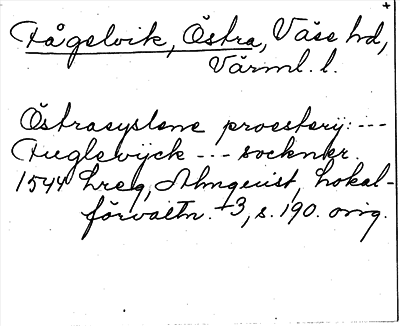 Fågelvik, Östra, Väse hd,
Värml. l.
Östrasyslene proesterij: ---
Fuglevijck --- socknkr.
1544 Lreg, Almquist, Lokal-
förvaltn. +3, s. 190. orig.